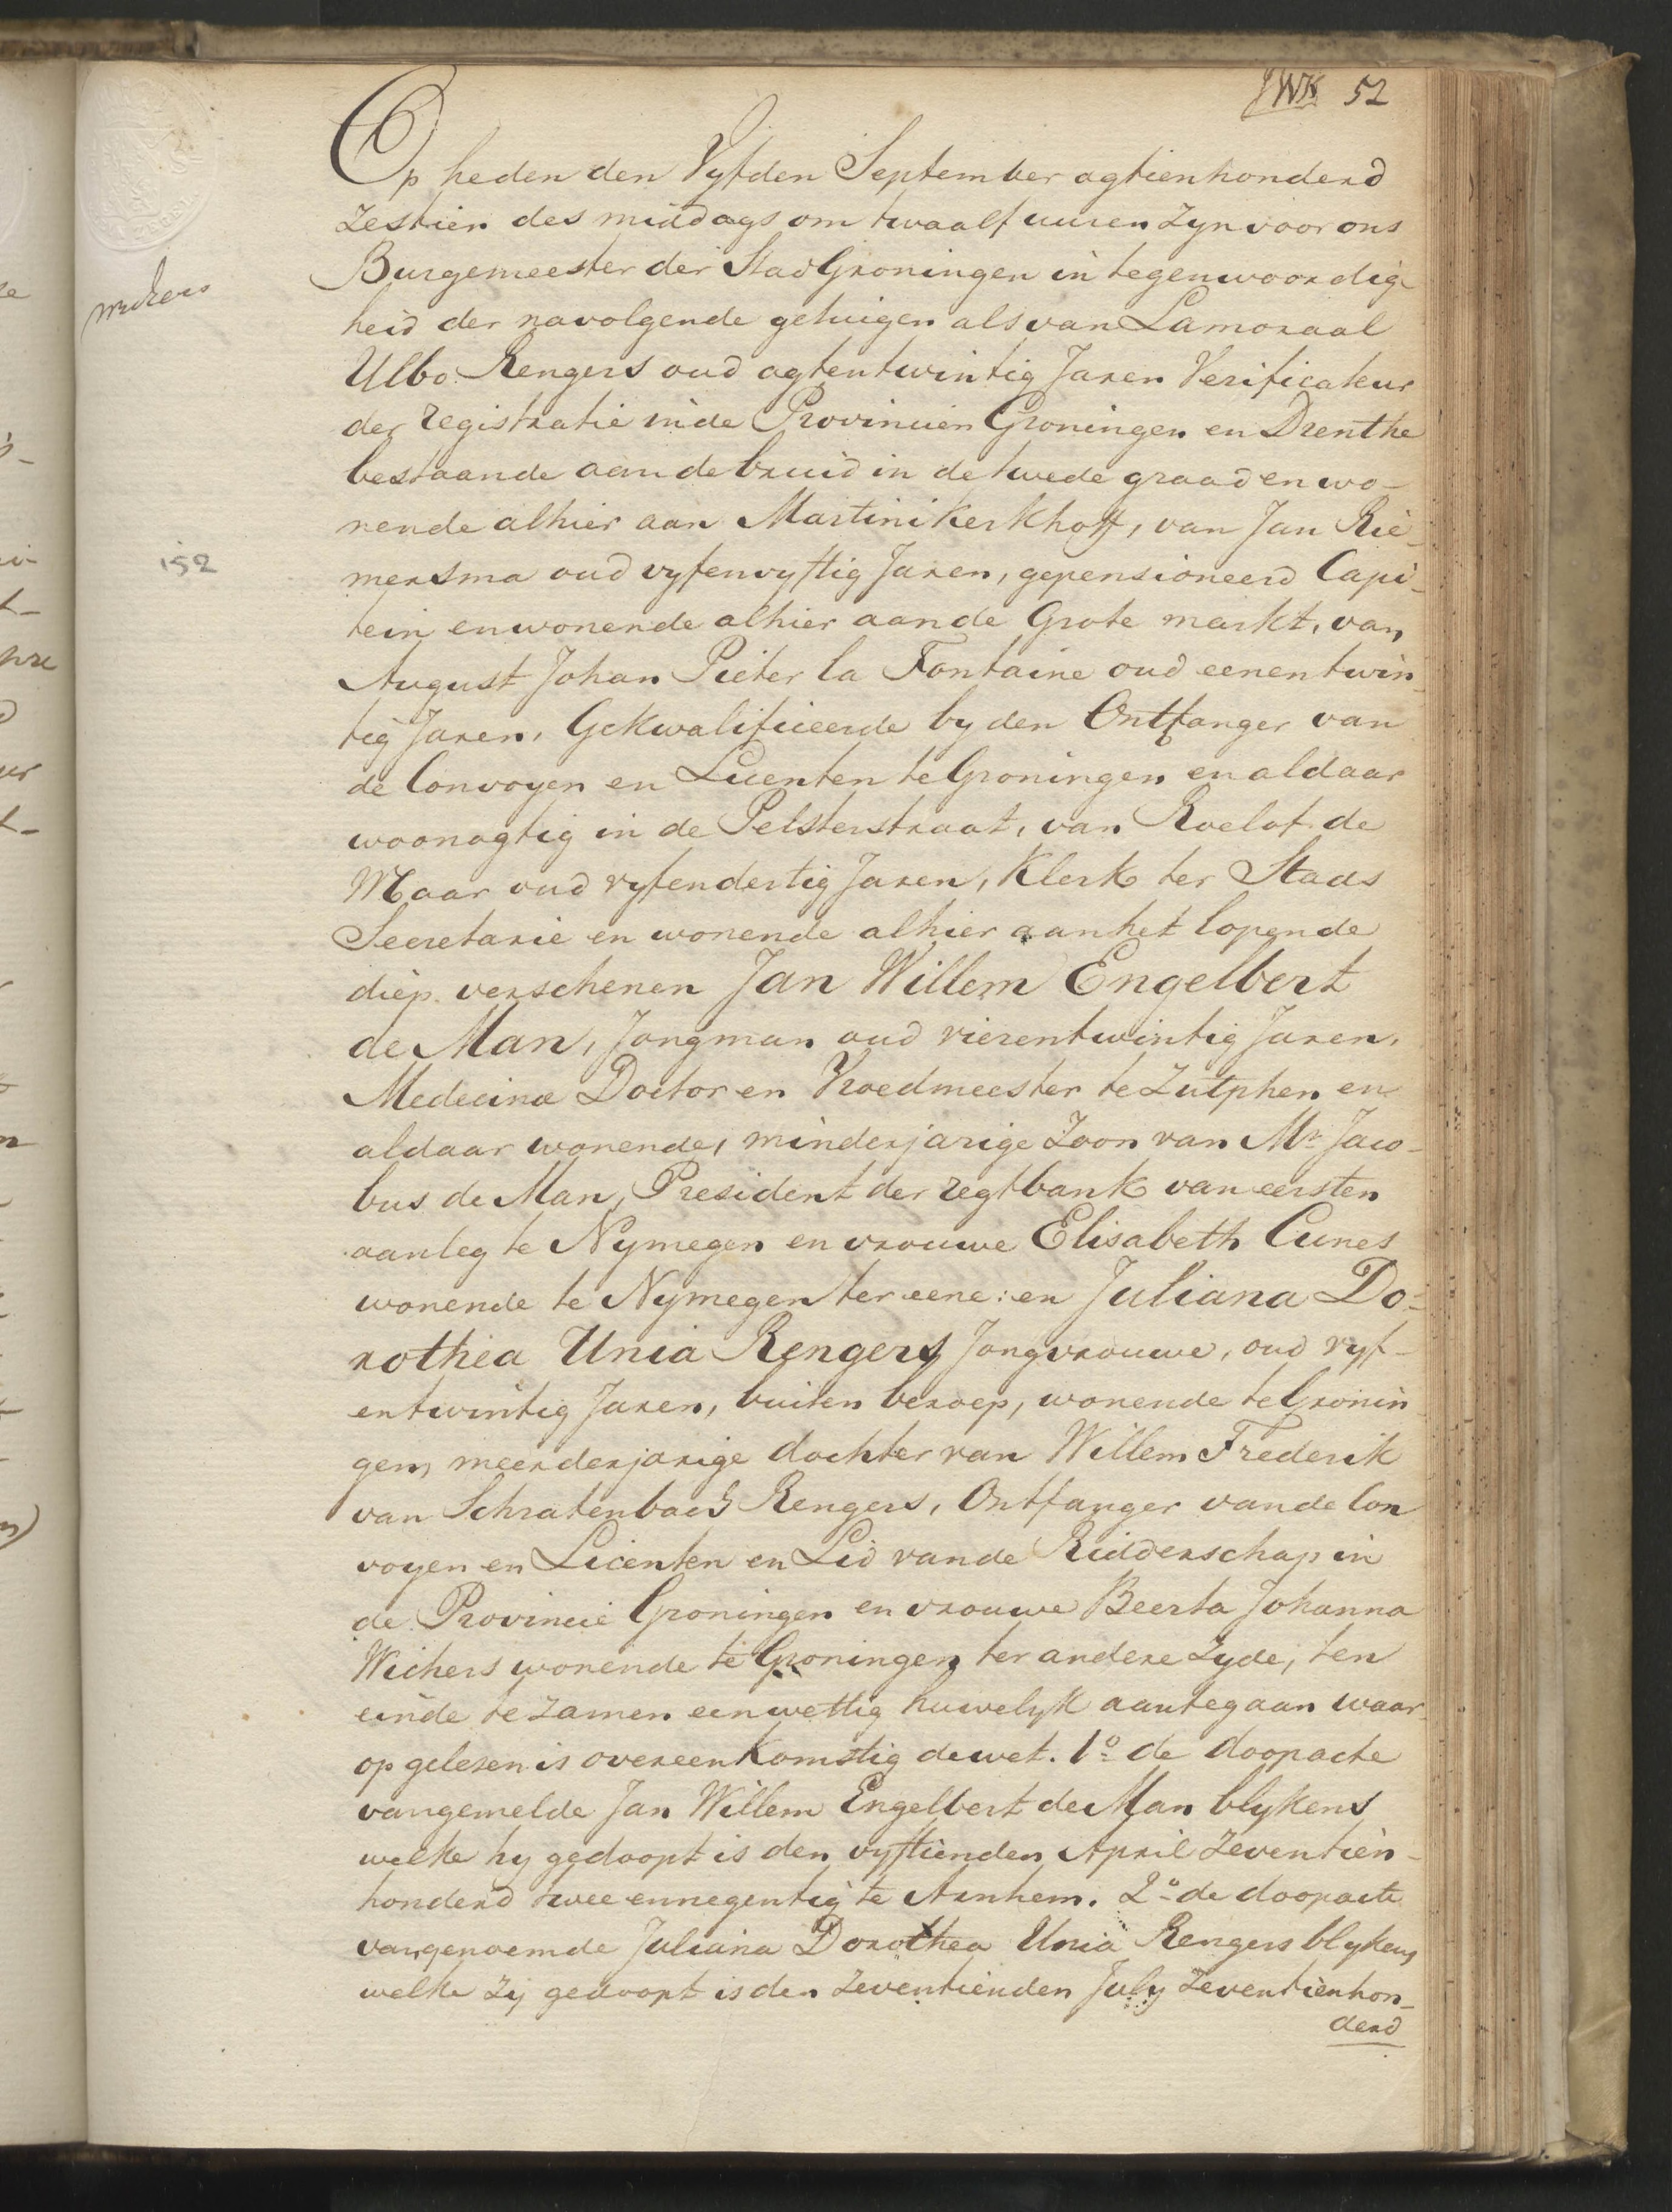 52
Op heden den Vyfden September agtienhonderd
zestien des middags om twaalf uuren zyn voor ons
Burgemeester der Stad Groningen in tegenwoordig
heid der navolgende getuigen als van Lamoraal
Ulbo Rengers oud agtentwintig Jaren Verificateur
der registratie in de Provincien Groningen en Drenthe
bestaande aan de bruid in de twede graad en wo-
nende alhier aan Martini Kerkhoff, van Jan Rie-
mersma oud vyfenvyftig Jaren, gepensioneerd Capi-
tein en wonende alhier aan de Grote markt, van
August Johan Pieter la Fontaine oud eenentwin-
tig Jaren, Gekwalificeerde by den Ontfanger van
de Convoyen en Licenten te Groningen en aldaar
woonagtig in de Pelsterstraat, van Roelof de
Maar oud vyfendertig Jaren, Klerk ter Stads
Secretarie en wonende alhier aan het lopende
diep. verschenen Jan Willem Engelbert
de Man, Jongman oud vierentwintig Jaren,
Medecinæ Doctor en Vroedmeester te Zutphen en
aldaar wonende, minderjarige Zoon van Mr. Jaco-
bus de Man, President der regtbank van eersten
aanleg te Nymegen en vrouwe Elisabeth Cunes
wonende te Nymegen ter eene: en Juliana Do-
rothea Unia Rengers Jongvrouwe, oud vyf-
entwintig Jaren, buiten beroep, wonende te Gronin
gen, meerderjarige dochter van Willem Frederik
van Schratenbach Rengers, Ontfanger van de Con
voyen en Licenten en Lid van de Ridderschap in
de Provincie Groningen en vrouwe Beerta Johanna
Wichers wonende te Groningen ter andere Zyde, ten
einde te zamen een wettig huwelyk aantegaan waar-
op gelesen is overeenkomstig de wet. 1o. de doopacte
van gemelde Jan Willem Engelbert de Man blykens
welke hy gedoopt is den vyftienden April Zeventien-
honderd twee ennegentig te Arnhem. 2o. de doopacte
van genoemde Juliana Dorothea Unia Rengers blykens
welke zij gedoopt is den zeventienden July zeventienhon-
derd
152